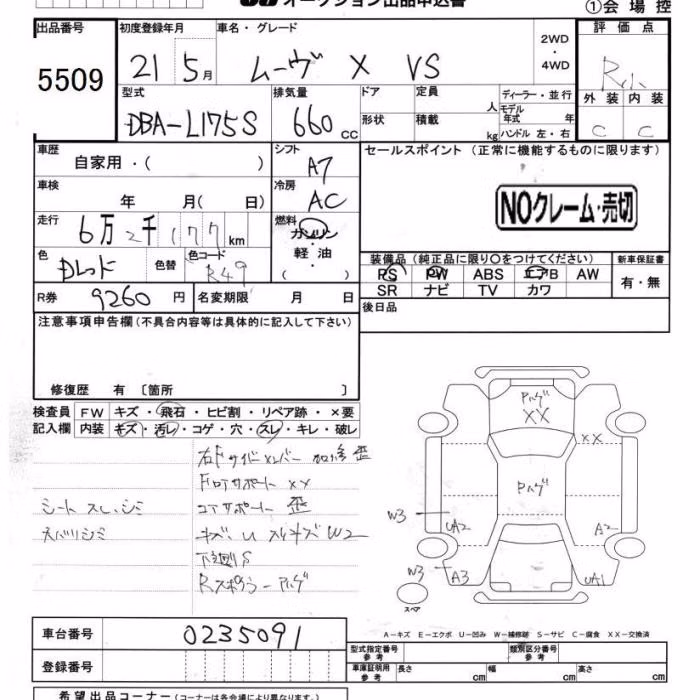 オークション出品申込書
①会場控
出品番号
5509
初度登録年月
21 5月
車名・グレード
ムーヴ X VS
2WD
・
4WD
評価点
R
外装 内装
C C
型式
DBA-L175S
排気量
660cc
ドア
形状
定員 人
積載 kg
ディーラー・並行
モデル
年式 年
ハンドル 左・右
車歴
自家用・( )
シフト
A7
セールスポイント(正常に機能するものに限ります)
NOクレーム・売切
車検
年 月( 日)
冷房
AC
走行
6万2千177km
燃料
ガソリン
軽油
( ・ )
色
Dレッド
色替
色コード
R49
装備品(純正品に限り〇をつけてください)
PS PW ABS エアB AW
SR ナビ TV カワ
新車保証書
有・無
R券 9260円
名変期限 月 日
後日品
注意事項申告欄(不具合内容等は具体的に記入して下さい)
修復歴 有〔箇所 〕
検査員 FW キズ・飛石・ヒビ割・リペア跡・×要
記入欄 内装 キズ・汚レ・コゲ・穴・スレ・キレ・破レ
右Fサイドメンバー 歪
FロアサポートXX
シートスレ、シミ
コアサポート 歪
ネバリジミ
キズ、U スリキズ W2
下廻りS
Rスポイラーハゲ
Pハゲ
XX
XX
Pハゲ
W3
UA2
A2
W3
A3
UA1
スペア
A-キズ E-エクボ U-凹み W-補修跡 S-サビ C-腐食 XX-交換済
車台番号
0235091
登録番号
型式指定番号
参考
類別区分番号
参考
車庫証明用
参考
長さ cm
幅 cm
高さ cm
希望出品コーナー(コーナーは各会場により異なります。)